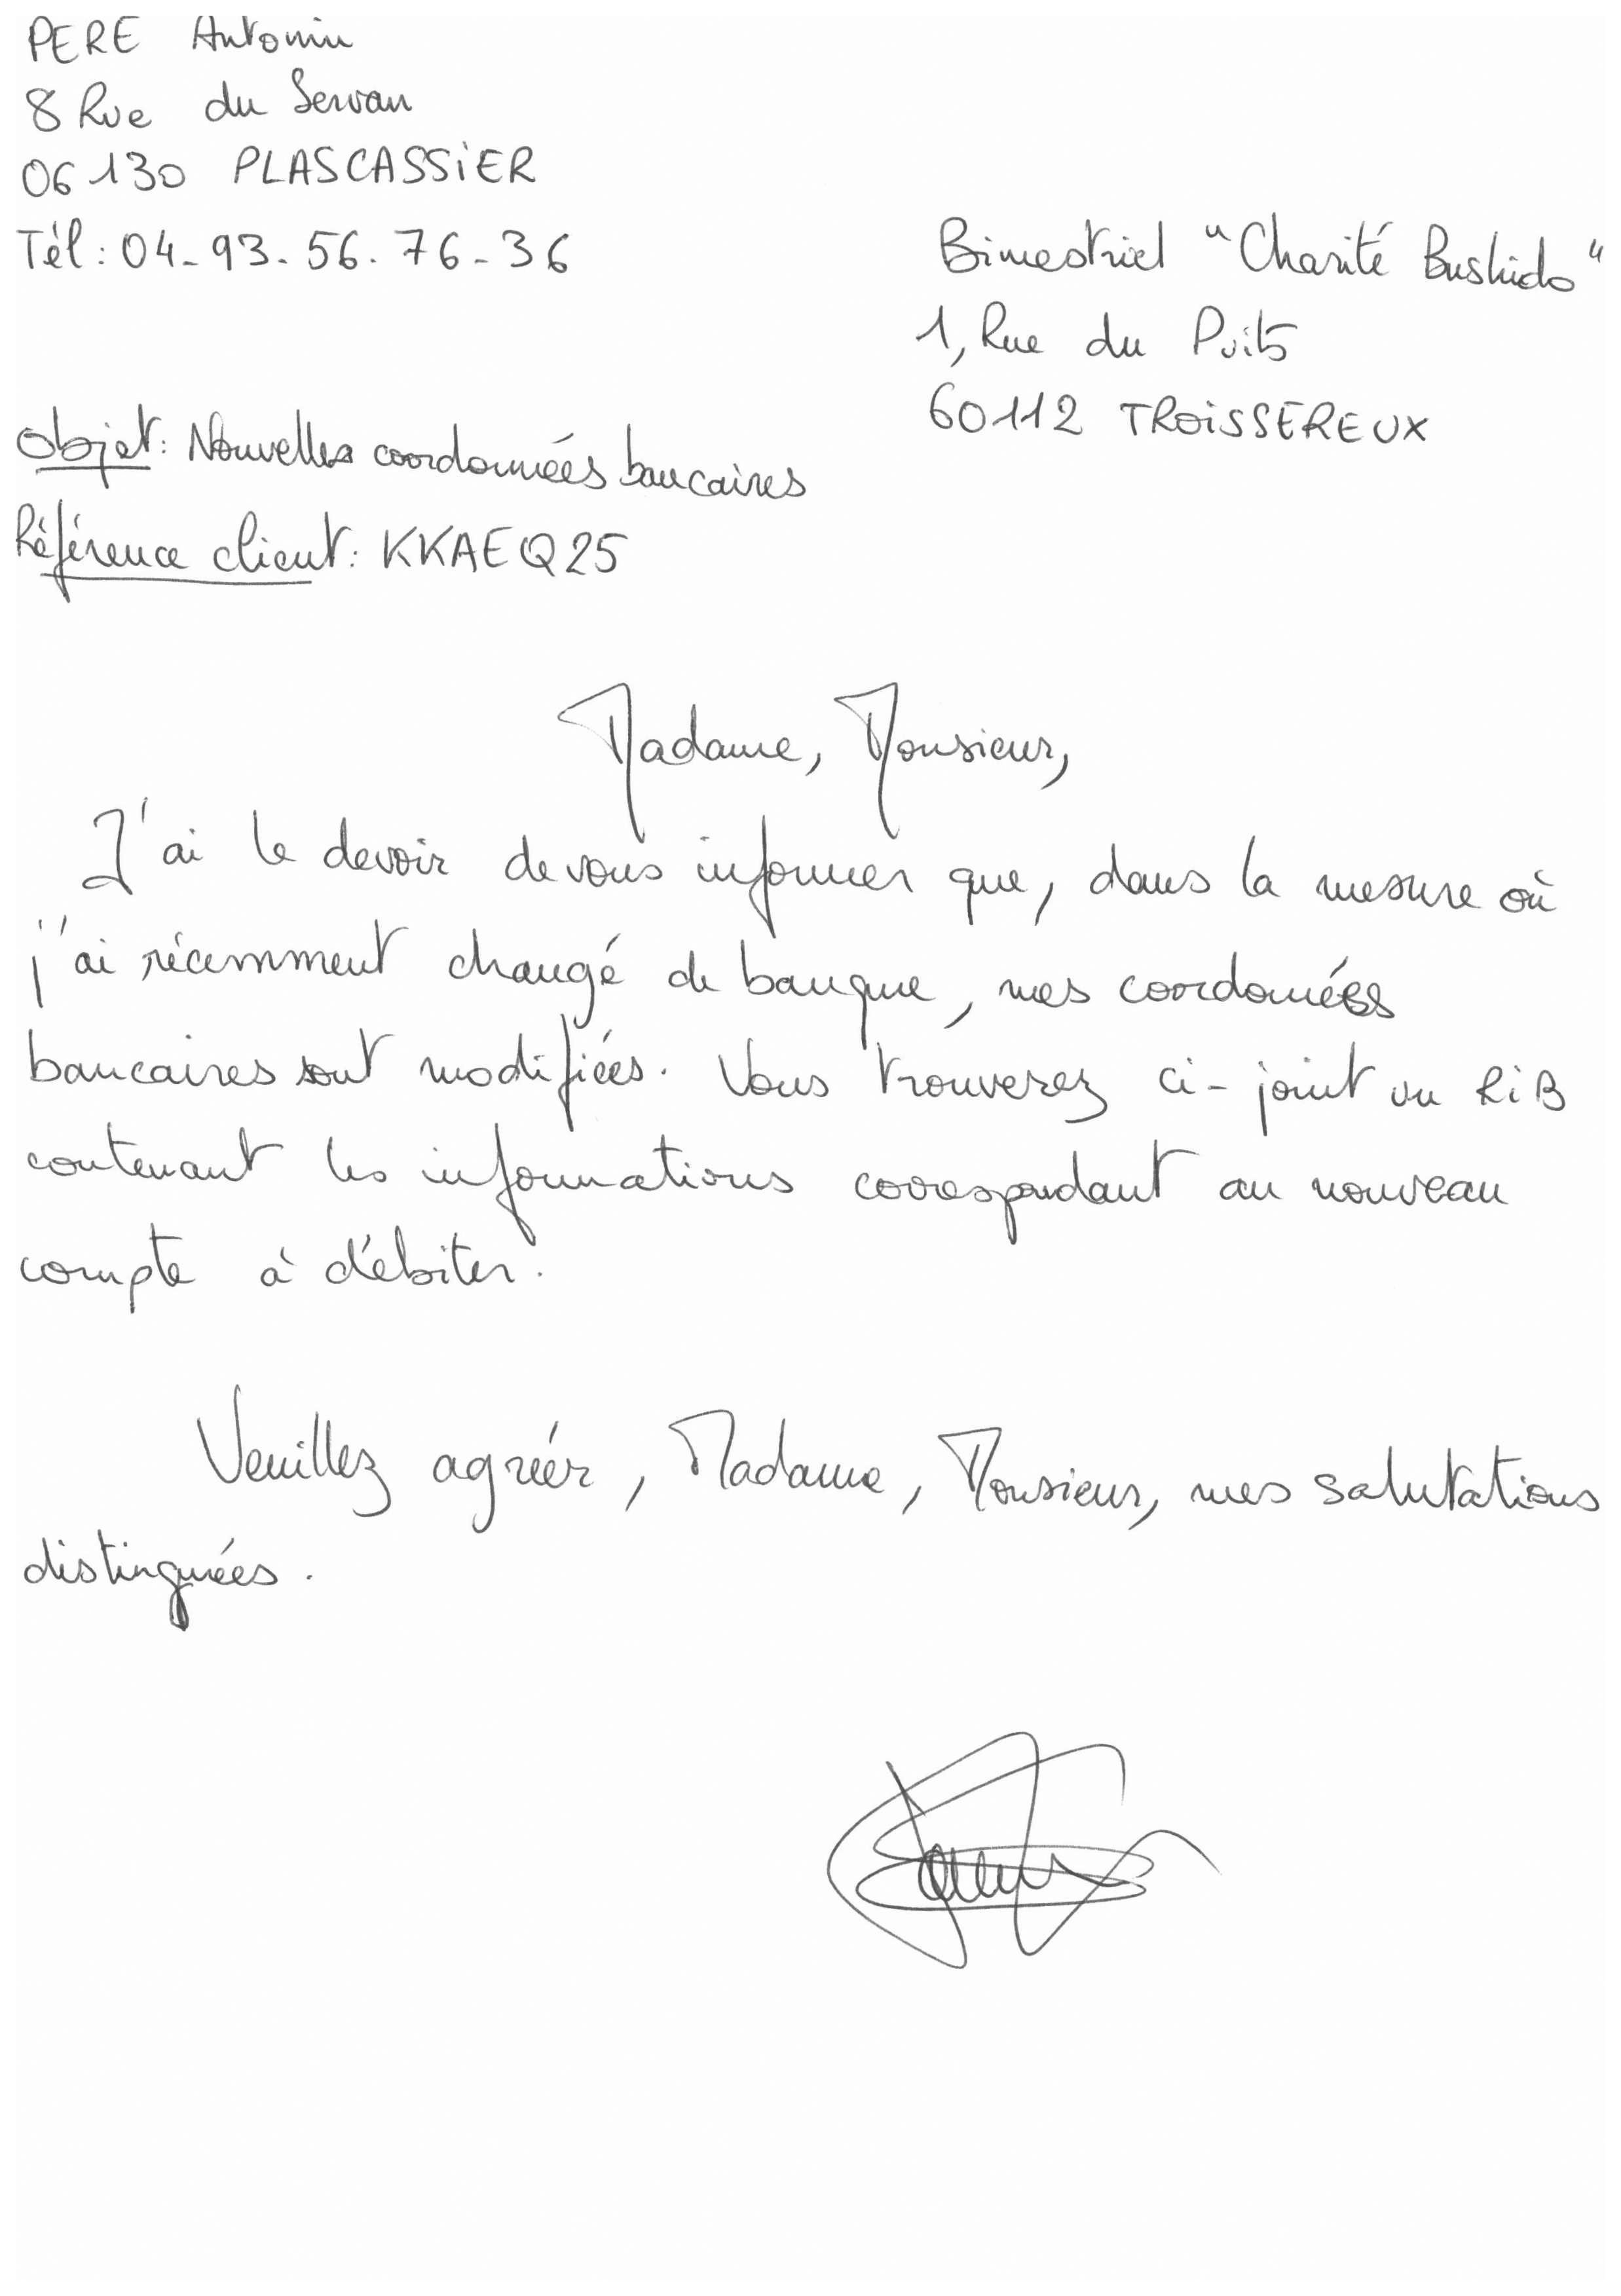 PERE Antonin
8 Rue du Servan
06130 PLASCASSIER
Tél : 04-93-56-76-36
Bimestriel "Charité Bushido"
1, Rue du Puits
60112 TROISSEREUX
Objet : Nouvelles coordonnées bancaires
Référence client : KKAEQ25
Madame, Monsieur,
J'ai le devoir de vous informer que, dans la mesure où
j'ai récemment changé de banque, mes coordonnées
bancaires sont modifiées. Vous trouverez ci-joint un RIB
contenant les informations correspondant au nouveau
compte à débiter.
Veuillez agréer, Madame, Monsieur, mes salutations
distinguées.